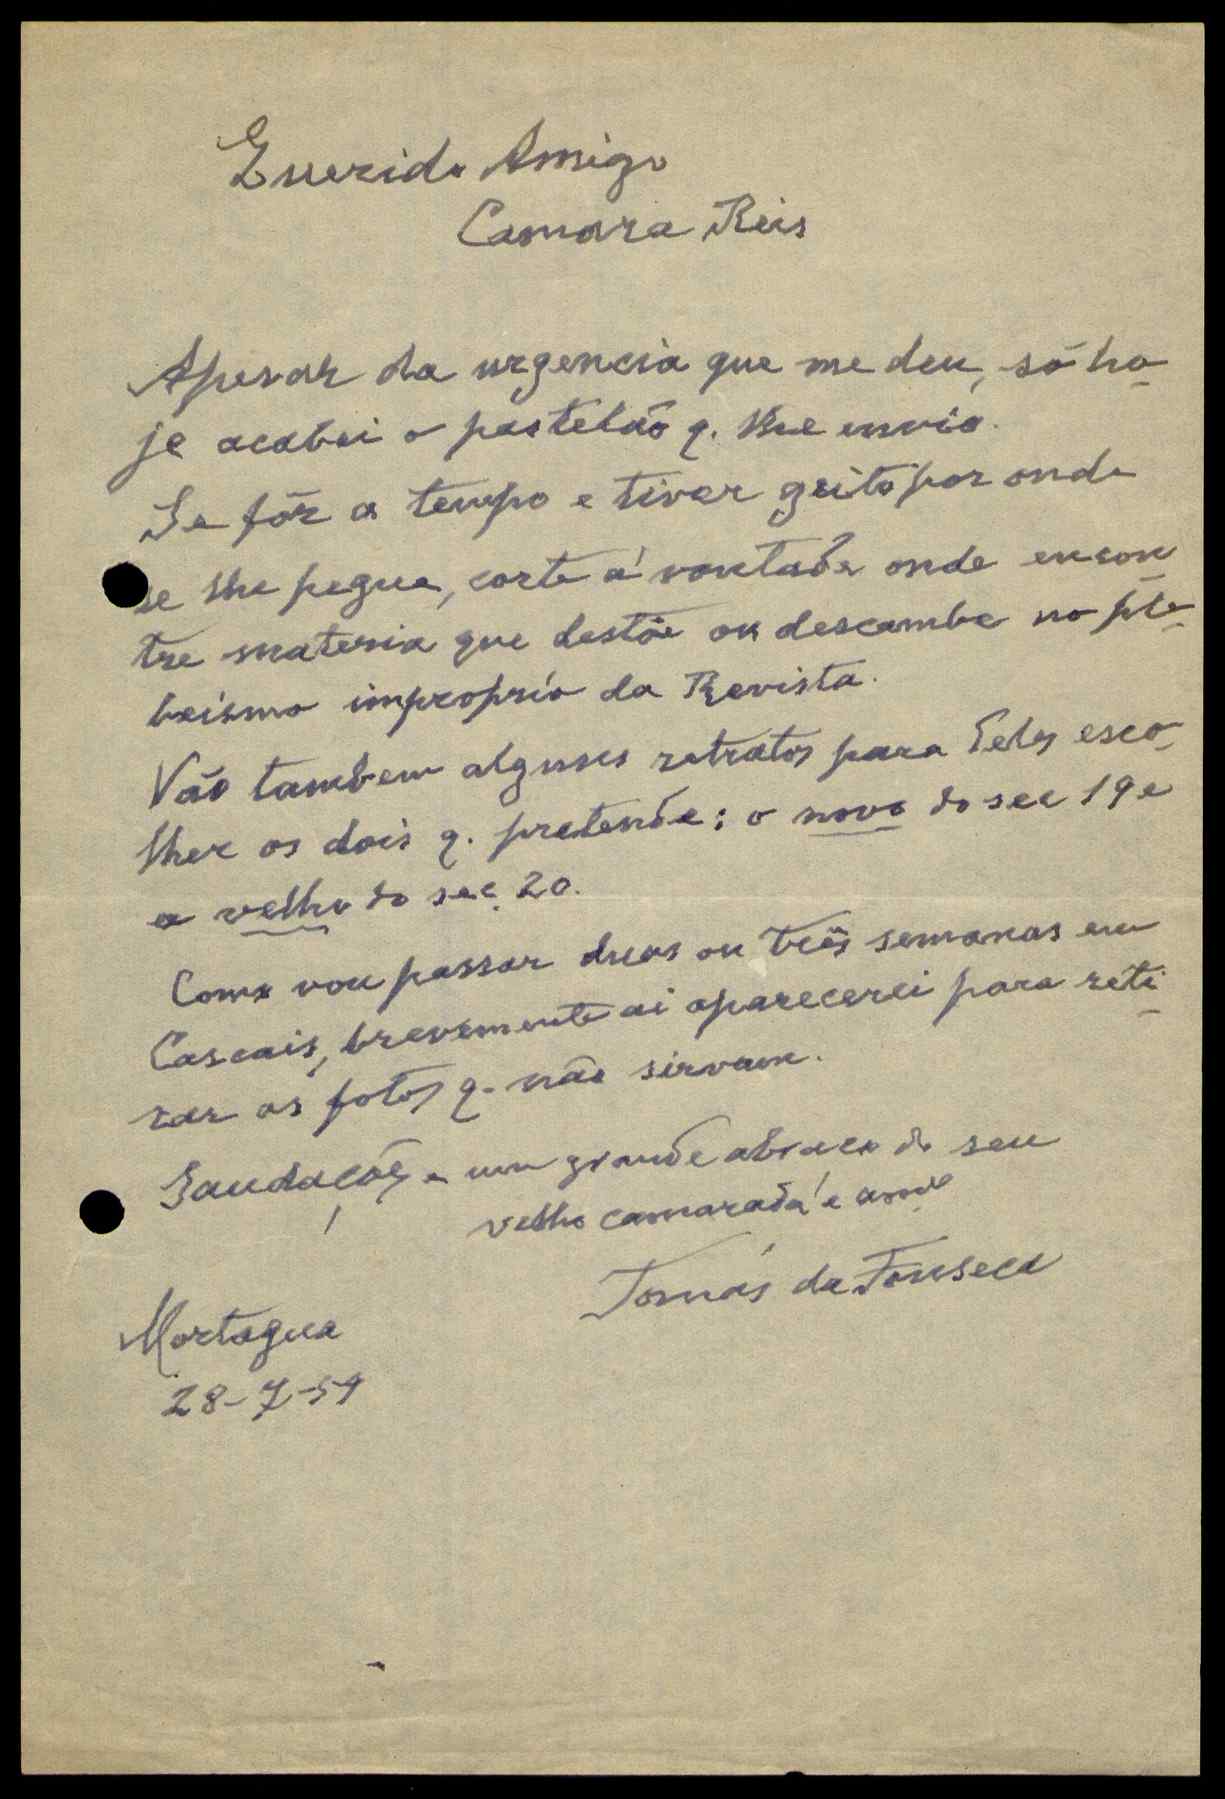 Querido Amigo
Camara Reis
Apesar da urgencia que me deu, só ho-
je acabei o pastelão q. lhe envio.
Se fôr a tempo e tiver geito por onde
se lhe pegue, corte á vontade onde encon-
tre materia que destôe ou descambe no ple-
beismo improprio da Revista.
Vão tambem alguns retratos para deles esco-
lher os dois q. pretende: o novo do sec 19 e
o velho do sec. 20.
Como vou passar duas ou três semanas em
Cascais, brevemente ai aparecerei para reti-
rar as fotos q. não sirvam.
Saudações e um grande abraço do seu
velho camarada e amº
Tomás da Fonseca
Mortagua
28-7-59